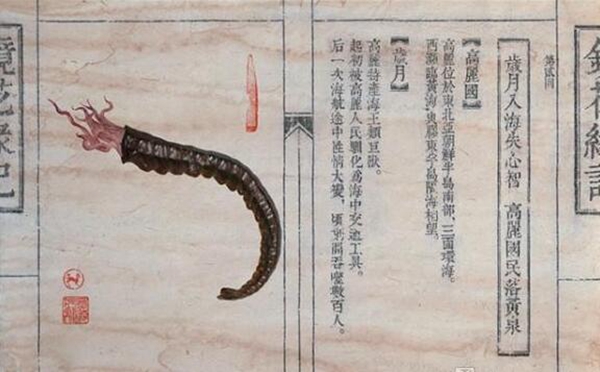 鏡花緣記
第貳回
歲月入海失心智 高麗國民落黃泉
【高麗國】
高麗位於東北亞朝鮮半島南部，三面環海。
西瀕臨黃海，與膠東半島隔海相望。
【歲月】
高麗特產海王類巨獸。
起初被高麗人民馴化為海中交通工具。
后一次海航途中性情大變，頃刻間吞噬數百人。
鏡花緣記